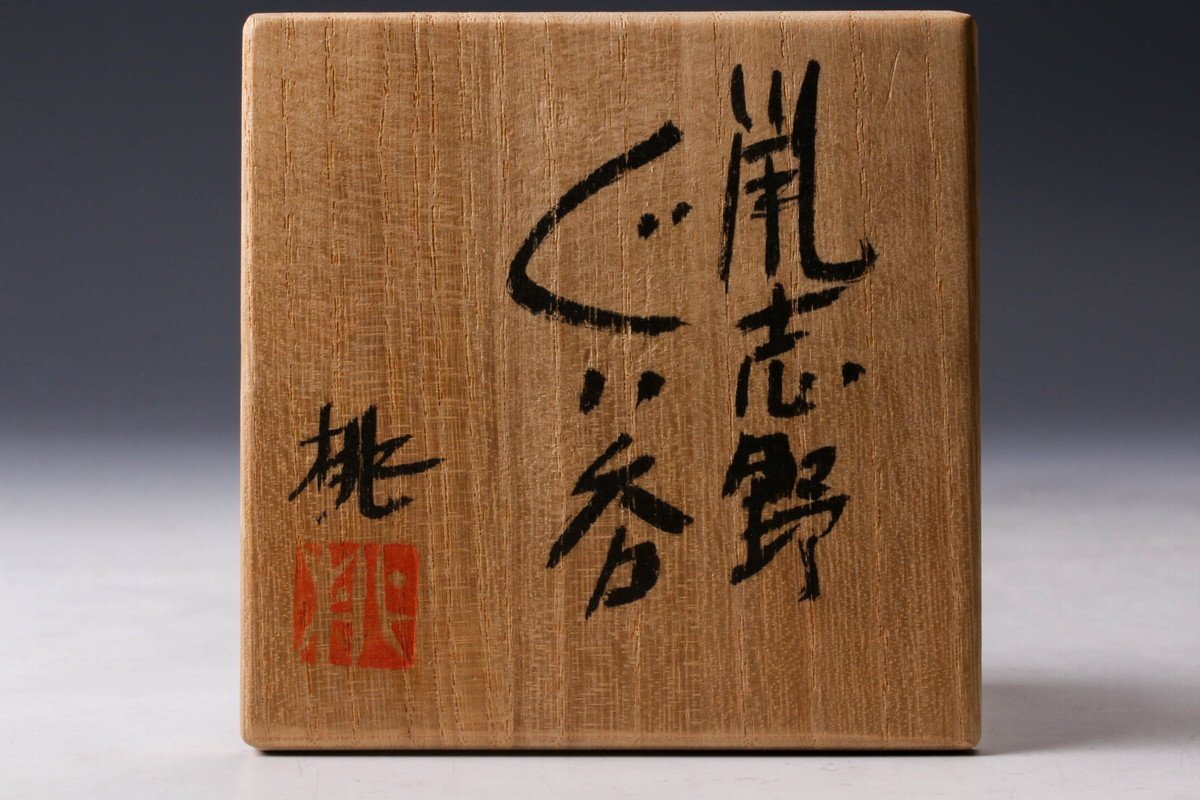 鼠志野
ぐい呑
桃